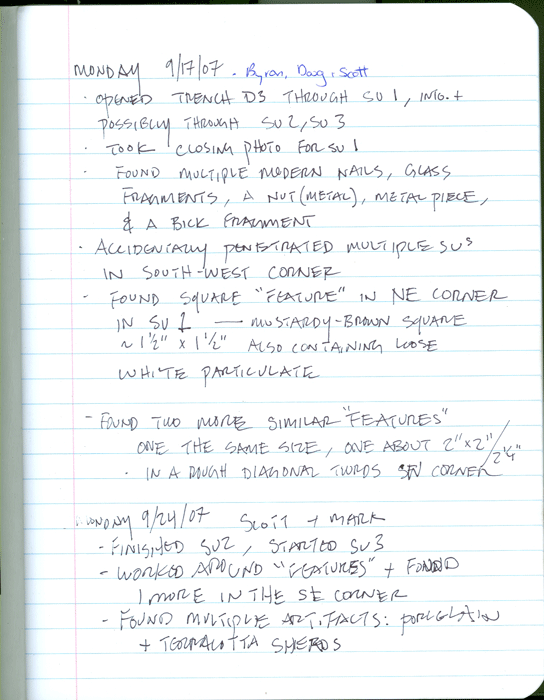 MONDAY 9/17/07 . Byron, Doug, Scott
· OPENED TRENCH D3 THROUGH SU 1, INTO +
POSSIBLY THROUGH SU 2, SU 3
· TOOK CLOSING PHOTO FOR SU 1
· FOUND MULTIPLE MODERN NAILS, GLASS
FRAGMENTS, A NUT (METAL), METAL PIECE,
& A BICK FRAGMENT
· ACCIDENTALLY PENETRATED MULTIPLE SUs
IN SOUTH-WEST CORNER
- FOUND SQUARE "FEATURE" IN NE CORNER
IN SU 1 — MUSTARDY-BROWN SQUARE
~ 1½" x 1½" ALSO CONTAINING LOOSE
WHITE PARTICULATE
- FOUND TWO MORE SIMILAR "FEATURES"
ONE THE SAME SIZE, ONE ABOUT 2" x 2" / 2¼"
· IN A ROUGH DIAGONAL TWRDS CORNER
MONDAY 9/24/07 SCOTT + MARK
- FINISHED SU2, STARTED SU3
- WORKED AROUND "FEATURES" + FOUND
1 MORE IN THE SE CORNER
- FOUND MULTIPLE ARTIFACTS: PORCELAIN
+ TERRACOTTA SHERDS